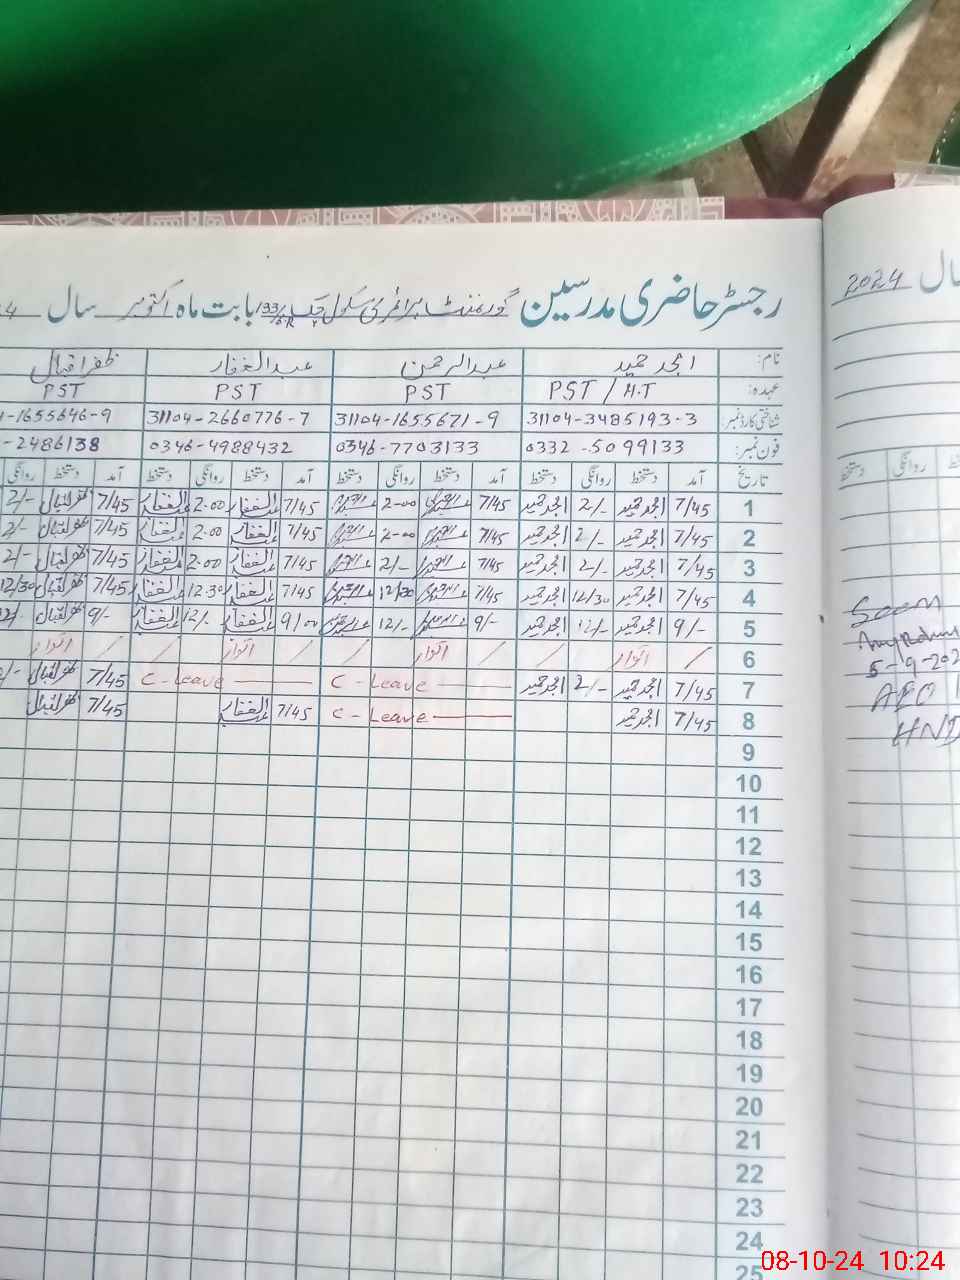 رجسٹر حاضری مدرسین گورنمنٹ پرائمری سکول چک 133/6R بابت ماہ اکتوبر سال
نام: امجد حمید عبدالرحمن عبدالغفار ظفر اقبال
عہدہ: PST / H.T PST PST PST
شناختی کارڈ نمبر: 31104-3485193-3 31104-1655671-9 31104-2660776-7 -1655646-9
فون نمبر: 0332-5099133 0346-7703133 0346-4988432 -2486138
تاریخ آمد دستخط روانگی دستخط آمد دستخط روانگی دستخط آمد دستخط روانگی دستخط آمد دستخط روانگی
1 7/45 امجد حمید 2/- امجد حمید 7/45 2-00 7/45 عبدالغفار 2.00 عبدالغفار 7/45 ظفر اقبال 2/-
2 7/45 امجد حمید 2/- امجد حمید 7/45 2-00 7/45 عبدالغفار 2.00 عبدالغفار 7/45 ظفر اقبال 2/-
3 7/45 امجد حمید 2/- امجد حمید 7/45 2/- 7/45 عبدالغفار 2.00 عبدالغفار 7/45 ظفر اقبال 2/-
4 7/45 امجد حمید 12/30 امجد حمید 7/45 12/30 7/45 عبدالغفار 12.30 عبدالغفار 7/45 ظفر اقبال 12/30
5 9/- امجد حمید 12/- امجد حمید 9/- 12/- 9/00 عبدالغفار 12/- عبدالغفار 9/- ظفر اقبال 12/-
6 / اتوار / / اتوار / / اتوار / / اتوار
7 7/45 امجد حمید 2/- امجد حمید C - Leave C - Leave 7/45 ظفر اقبال 2/-
8 7/45 امجد حمید C - Leave 7/45 عبدالغفار 7/45 ظفر اقبال
9
10
11
12
13
14
15
16
17
18
19
20
21
22
23
24
25
سال 2024
دستخط روانگی
Seen
5-9-202
AEO
08-10-24 10:24